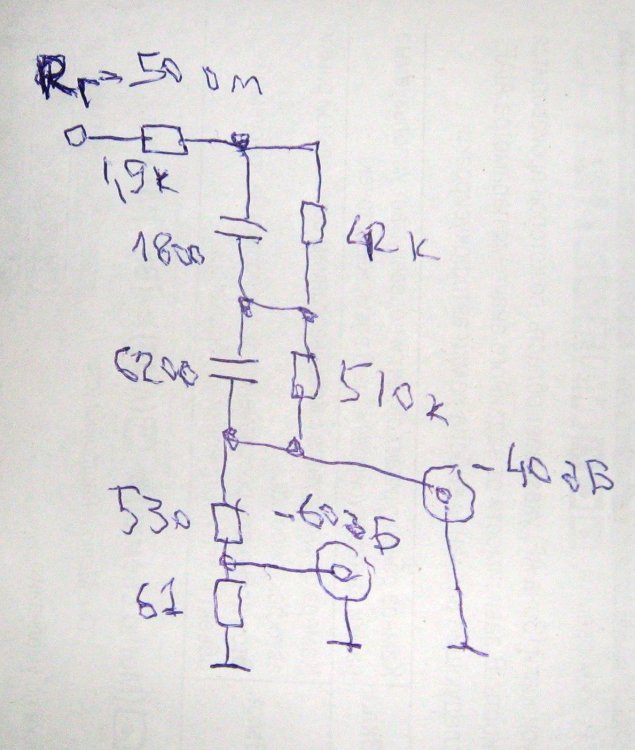 Rг=50 ом
1,9к
1800
42 к
6200
510к
-40дБ
530
-60дБ
61